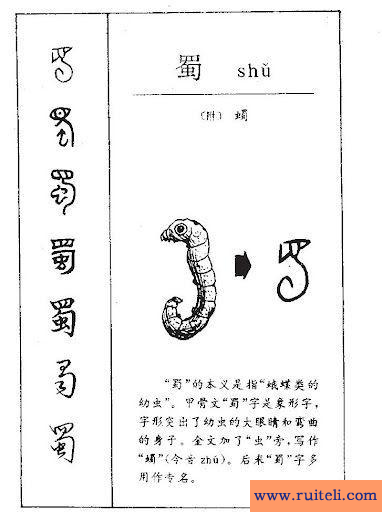 蜀 shǔ
(附) 蠋
“蜀”的本义是指“蛾蝶类的
幼虫”。甲骨文“蜀”字是象形字,
字形突出了幼虫的大眼睛和弯曲
的身子。金文加了“虫”旁,写作
“蠋”(今音zhú)。后来“蜀”字多
用作专名。
蜀
蜀
www.ruiteli.com